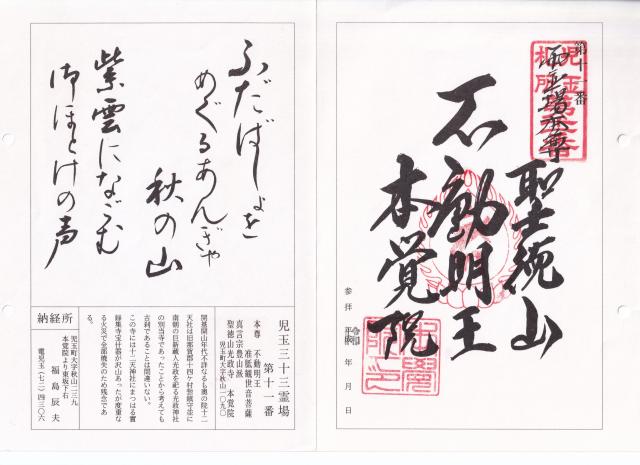 第十一番
聖徳山
不動明王
本覚院
参拝 令和 平成 年 月 日
ふだばしょを
めぐるあんぎゃ
秋の山
紫雲になごむ
御ほとけの声
児玉三十三霊場
第十一番
本尊 不動明王
准胝観世音菩薩
真言宗豊山派
聖徳山光政寺 本覚院
開基開山年代不詳なるも奥の院十二
天社は旧那賀郡十四ヶ村惣鎮守並に
南朝の臣新蔵人光政を祀る光政神社
の別当寺であったことから考えても
古刹であることは間違いない。
この寺には十二天神社にまつはる實
録集寺宝什器が沢山あったが度重な
る火災で全部焼失のため残念であ
る。
納経所
児玉町大字秋山二三九
本覚院より東坂下右
福島辰夫
電児玉(七二)四三〇六